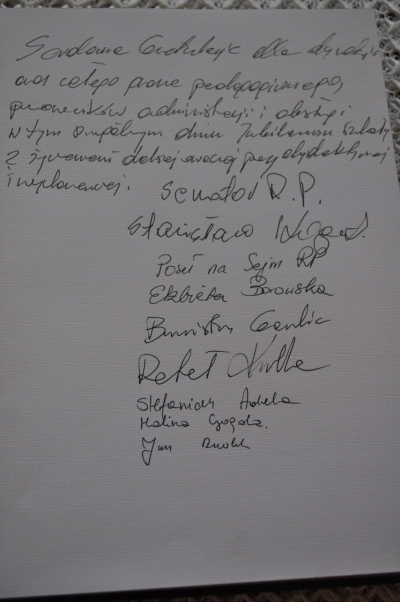 Serdeczne Gratulacje dla dyrekcji
oraz całego grona pedagogicznego,
pracowników administracji i obsługi
w tym wspólnym dniu Jubileuszu szkoły
z życzeniami dalszej owocnej pracy dydaktycznej
i wychowawczej.
Senator R.P.
Stanisław Kogut
Poseł na Sejm RP
Elżbieta Borowska
Burmistrz Gorlic
Rafał Kukla
Stefaniak Adela
Halina Gogola
Jan